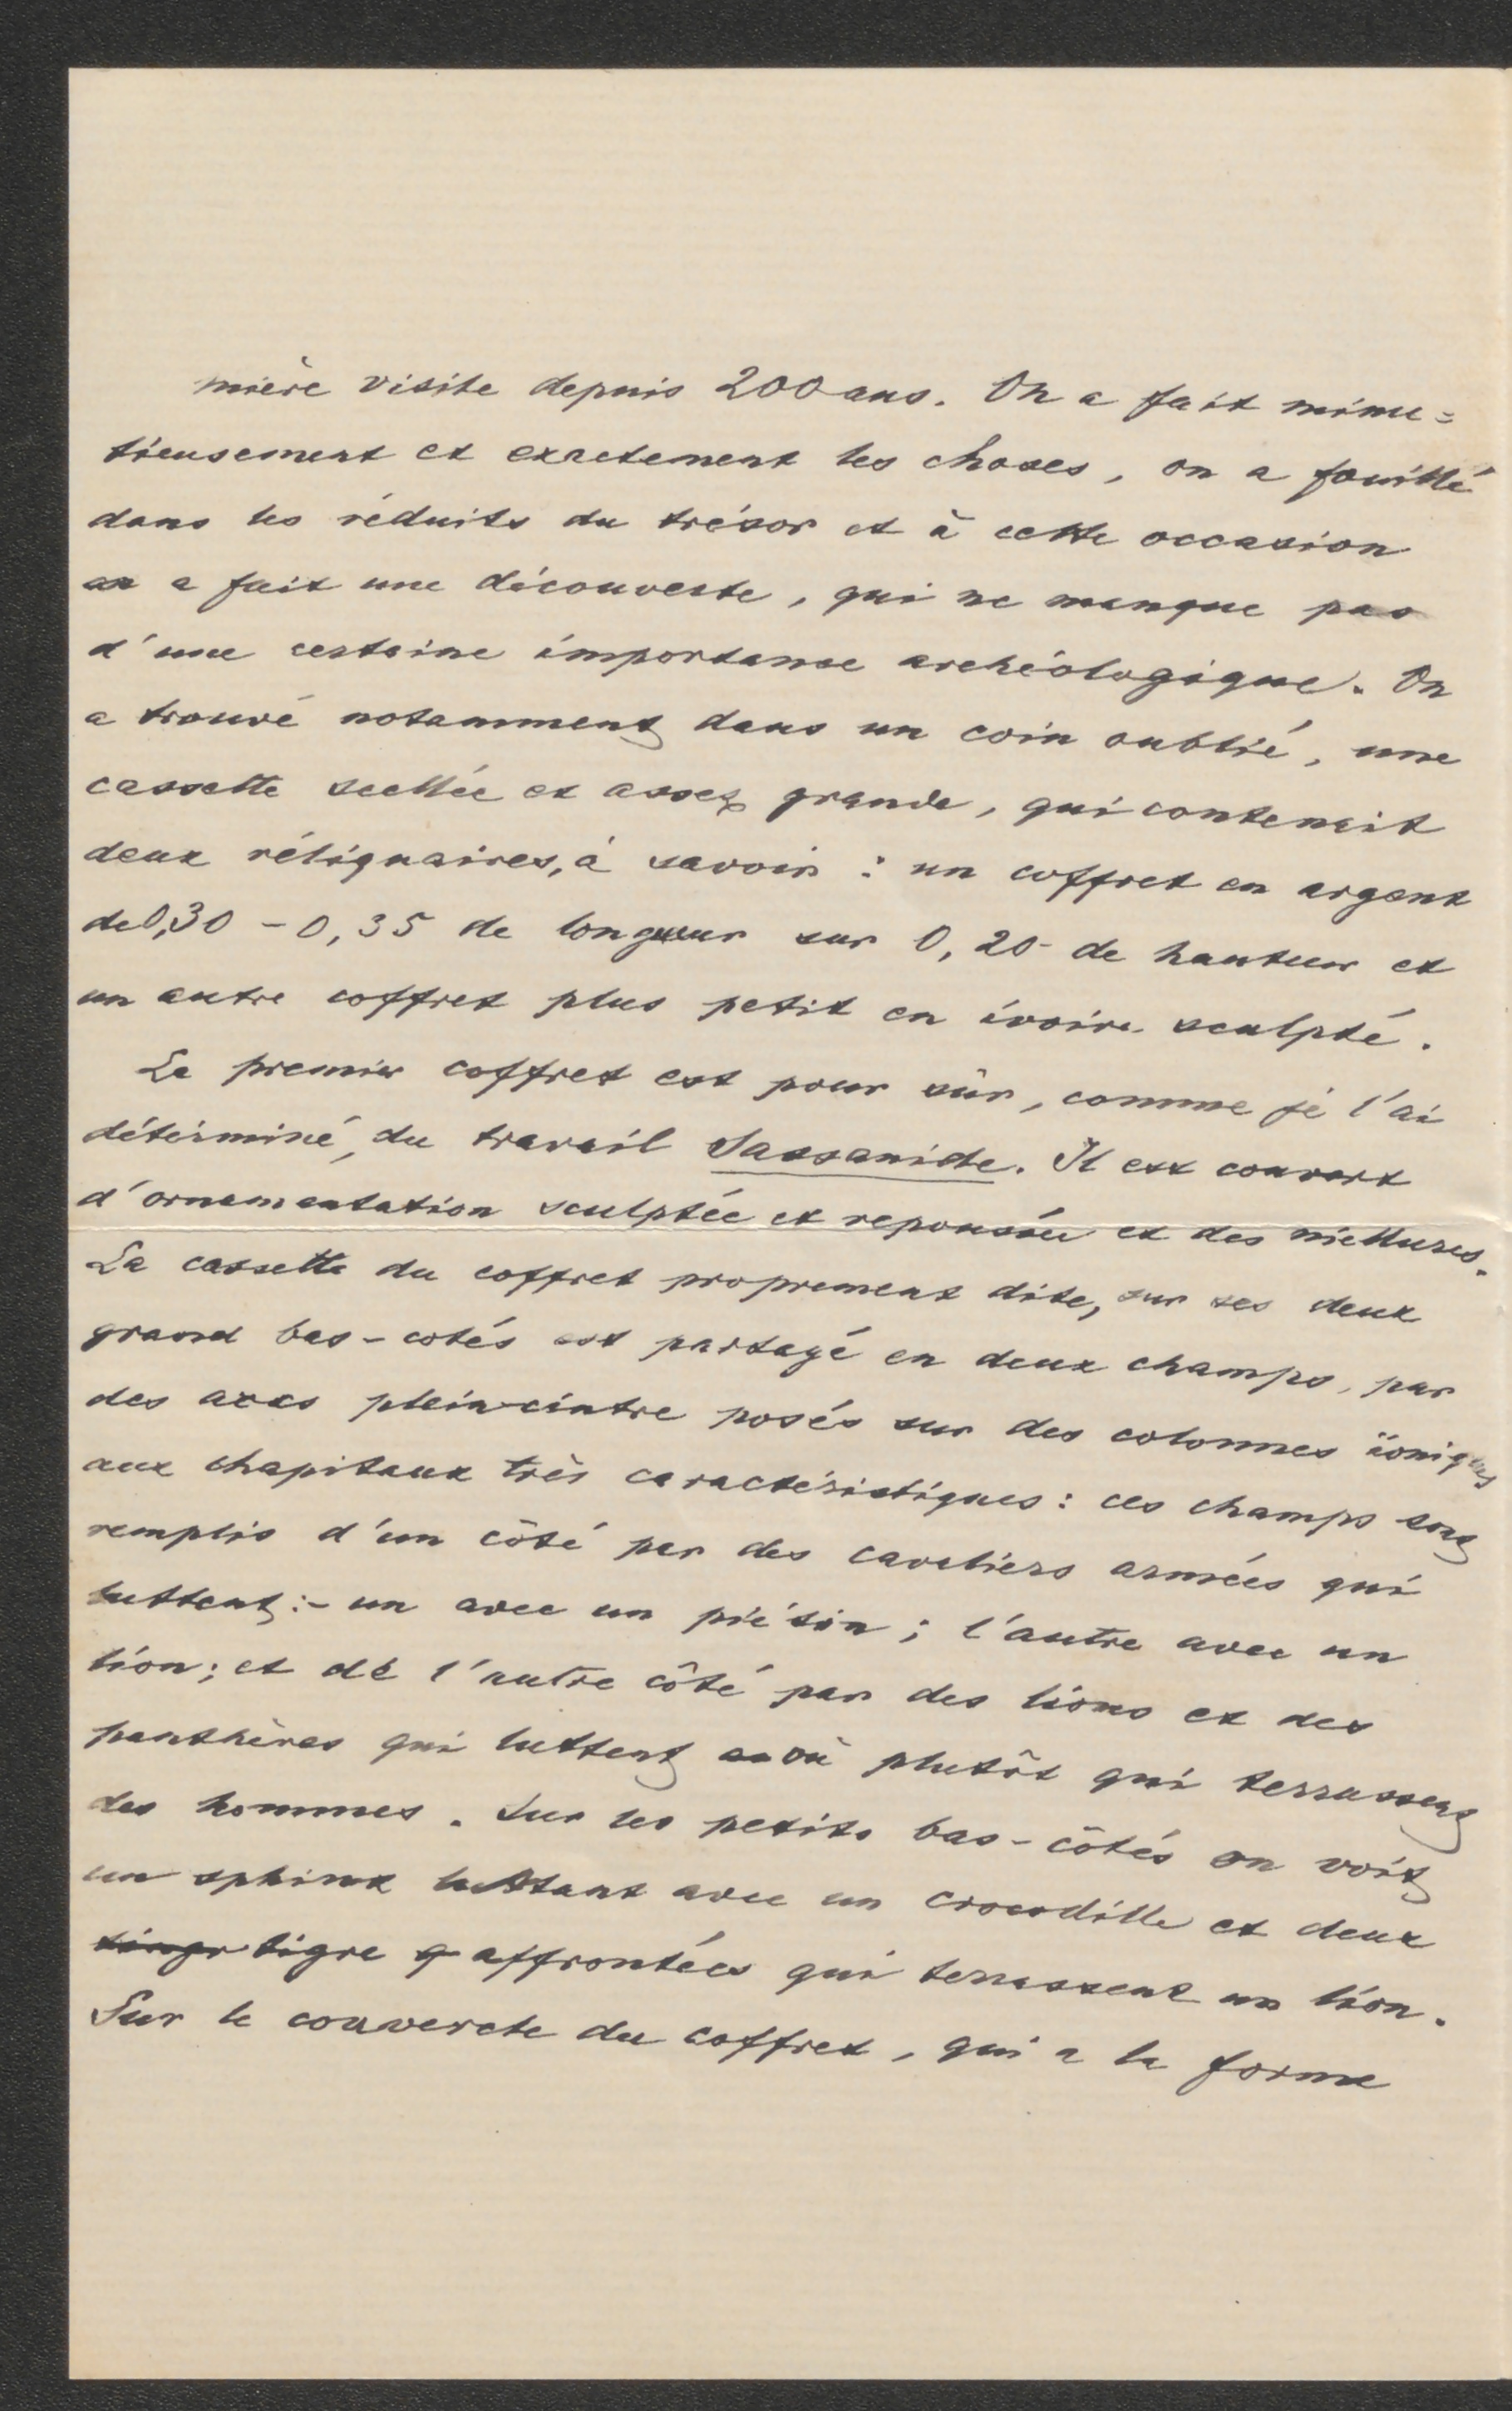 mière visite depuis 200 ans. On a fait minu=
tieusement et exactement les choses, on a fouillé
dans les réduits du trésor et à cette occasion
on a fait une découverte, qui ne manque pas
d'une certaine importance archéologique. On
a trouvé notamment dans un coin oublié, une
cassette scellée et assez grande, qui contenait
deux réliquaires, à savoir : un coffret en argent
de 0,30 - 0,35 de longueur sur 0,20 de hauteur et
un autre coffret plus petit en ivoire sculpté.
Le premier coffret est pour sûr, comme je l'ai
déterminé, du travail Sassanide. Il est couvert
d'ornementation sculptée et repoussée et des niellures.
La cassette du coffret proprement dite, sur ses deux
grand bas-cotés est partagé en deux champs, par
des arcs plein-cintre posés sur des colonnes ioniques
aux chapitaux très caractéristiques : ces champs sont
remplis d'un côté par des cavaliers armées qui
luttent :- un avec un piéton ; l'autre avec un
lion ; et de l'autre côté par des lions et des
panthères qui luttent ou plutôt qui terrassent
des hommes. Sur les petits bas-côtés on voit
un sphinx luttant avec un crocodille et deux
tigre affrontées qui terrassent un lion.
Sur le couvercle du coffret, qui a la forme